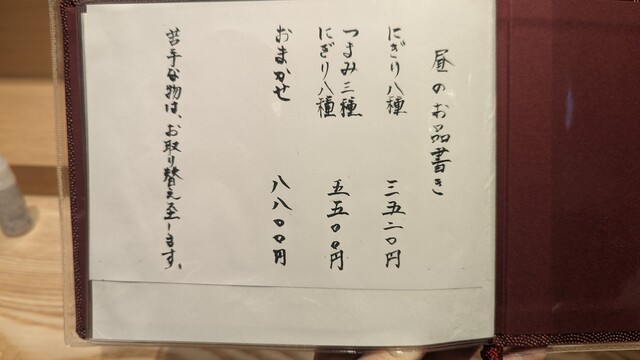 昼のお品書き
にぎり八種 三五二〇円
つまみ三種
にぎり八種 五五〇〇円
おまかせ 八八〇〇円
苦手な物は、お取り替え至します。